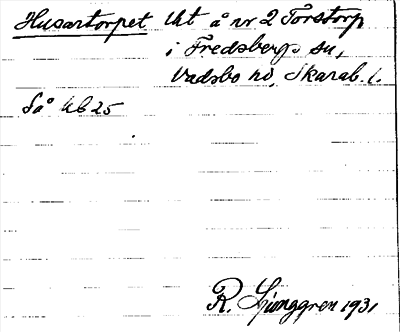 Husartorpet lht å nr 2 Torstorp
i Fredsbergs sn,
Vadsbo hd, Skarab. l.
Så kb 25
R. Ljunggren 1931